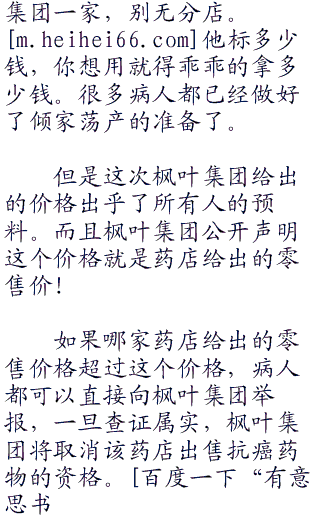 集团一家，别无分店。
[m.heihei66.com]他标多少
钱，你想用就得乖乖的拿多
少钱。很多病人都已经做好
了倾家荡产的准备了。
但是这次枫叶集团给出
的价格出乎了所有人的预
料。而且枫叶集团公开声明
这个价格就是药店给出的零
售价!
如果哪家药店给出的零
售价格超过这个价格，病人
都可以直接向枫叶集团举
报，一旦查证属实，枫叶集
团将取消该药店出售抗癌药
物的资格。[百度一下“有意
思书